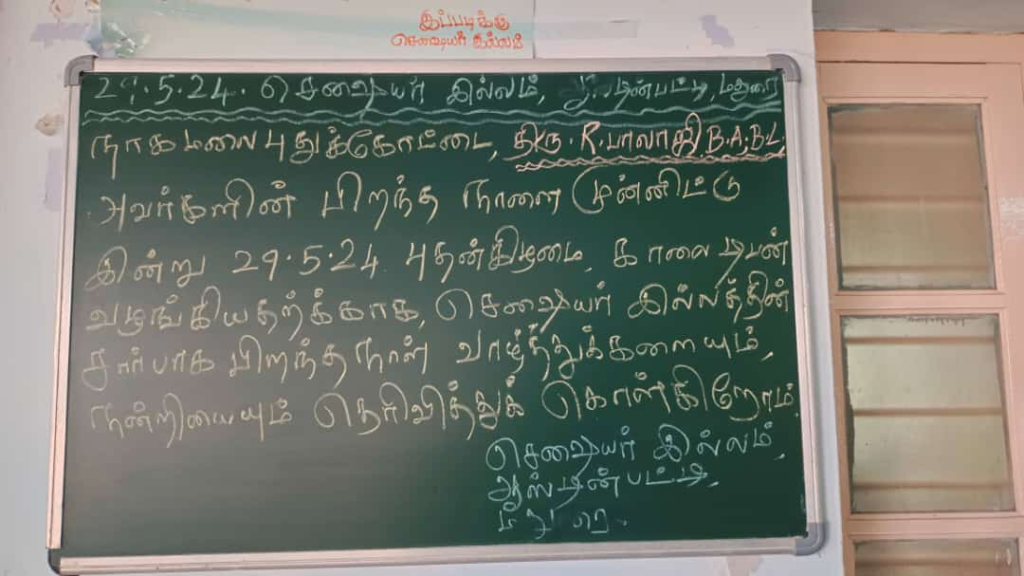 இப்படிக்கு
செஷையர் இல்லம்
29.5.24. செஷையர் இல்லம், மதுரை
நாகமலை புதுக்கோட்டை, திரு. R.பாலாஜி B.A; B.L.
அவர்களின் பிறந்த நாளை முன்னிட்டு
இன்று 29.5.24 புதன்கிழமை, காலை டிபன்
வழங்கியதற்க்காக, செஷையர் இல்லத்தின்
சார்பாக பிறந்தநாள் வாழ்ந்துக்களையும்,
நன்றியையும் தெரிவித்துக் கொள்கிறோம்.
செஷையர் இல்லம்,
ஆஸ்டின்பட்டி,
மதுரை.